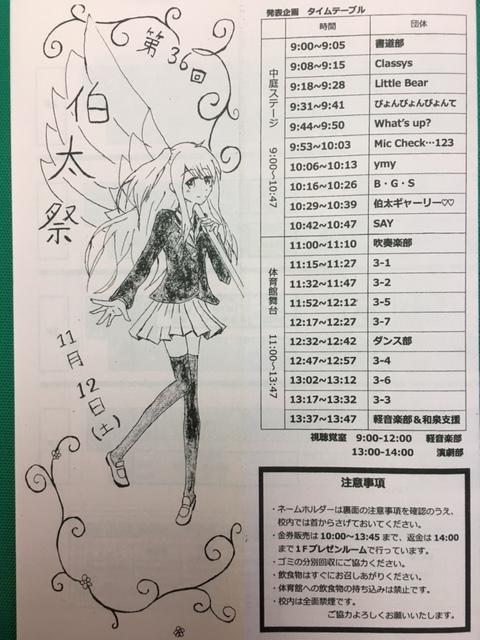 第36回
伯太祭
11月12日(土)
発表企画　タイムテーブル
時間　団体
中庭ステージ　9:00～10:47
9:00~9:05　書道部
9:08~9:15　Classys
9:18~9:28　Little Bear
9:31~9:41　ぴょんぴょんぴょんて
9:44~9:50　What's up?
9:53~10:03　Mic Check…123
10:06~10:13　ymy
10:16~10:26　B・G・S
10:29~10:39　伯太ギャーリー♡♡
10:42~10:47　SAY
体育館舞台　11:00～13:47
11:00~11:10　吹奏楽部
11:15~11:27　3-1
11:32~11:47　3-2
11:52~12:12　3-5
12:17~12:27　3-7
12:32~12:42　ダンス部
12:47~12:57　3-4
13:02~13:12　3-6
13:17~13:32　3-3
13:37~13:47　軽音楽部＆和泉支援
視聴覚室　9:00-12:00　軽音楽部
13:00-14:00　演劇部
注意事項
・ネームホルダーは裏面の注意事項を確認のうえ、
校内では首からさげておいてください。
・金券販売は 10:00~13:45 まで、返金は 14:00
まで１Ｆプレゼンルームで行っています。
・ゴミの分別回収にご協力ください。
・飲食物はすぐにお召しあがりください。
・体育館への飲食物の持ち込みは禁止です。
・校内は全面禁煙です。
ご協力よろしくお願いいたします。